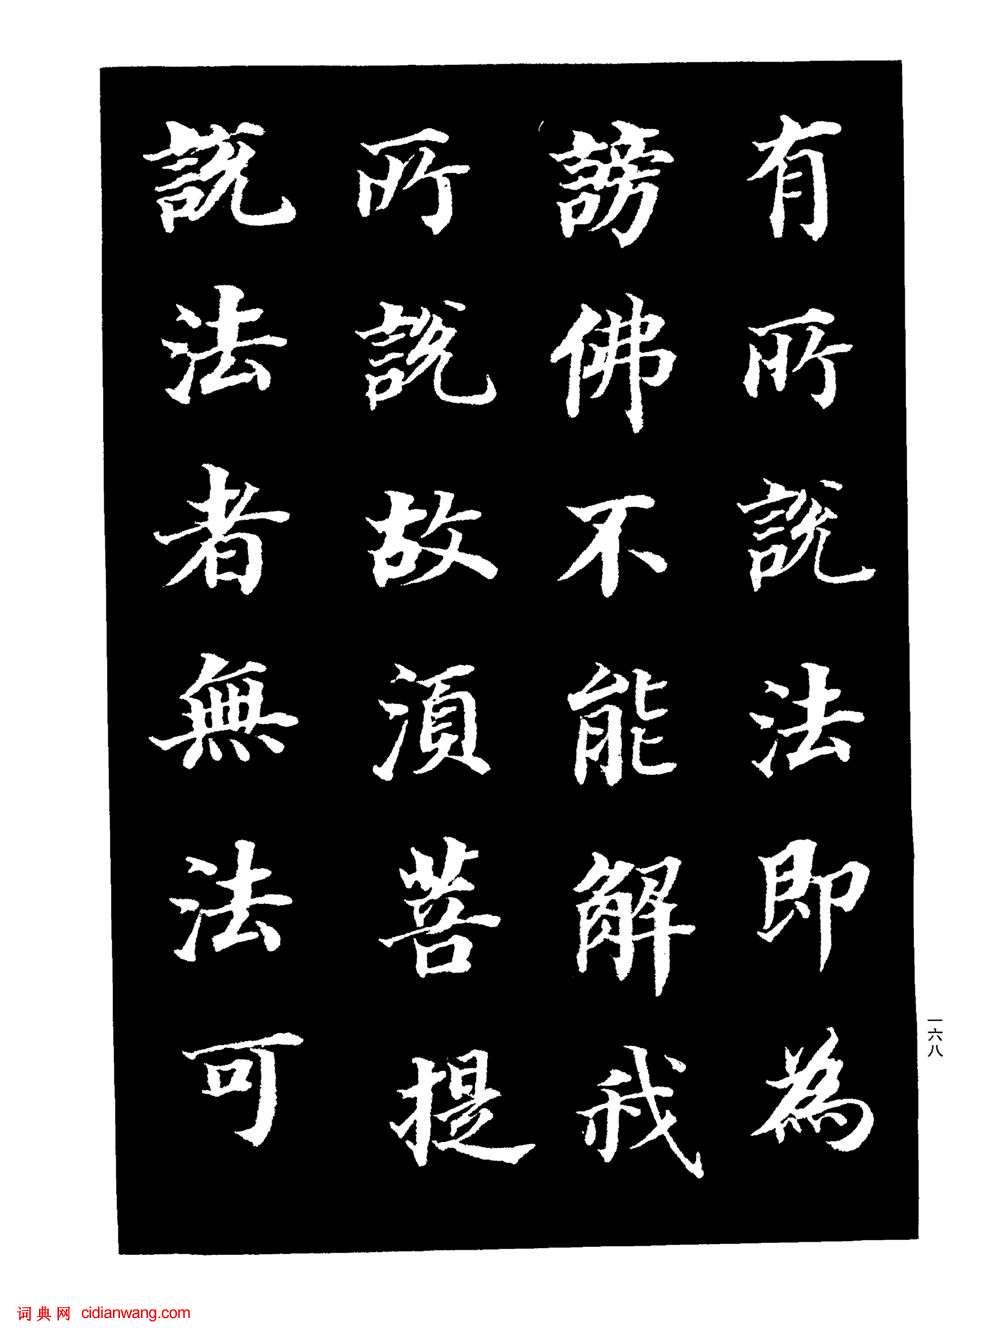 有所說法即為
謗佛不能解我
所說故湏菩提
說法者無法可
一六八
词典网 cidianwang.com